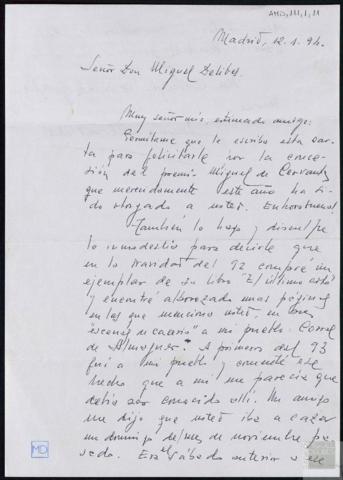 AMD,111,1,11
Madrid, 12.1.94.
Señor Don Miguel Delibes.
Muy señor mío, estimado amigo:
Permítame que le escriba esta car-
ta para felicitarle por la conce-
sión del premio Miguel de Cervantes
que merecidamente este año ha si-
do otorgado a usted. Enhorabuena!
También lo hago y disculpe
la inmodestia para decirle que
en la navidad del 92 compré un
ejemplar de su libro "El último coto"
y encontré alborozado unas páginas
en las que menciona usted, en
"escenas de cacería" a mi pueblo: Corral
de Almaguer. A primeros del 93
fui a mi pueblo y comenté ese
hecho que a mí me parecía que
debía ser conocido allí. Un amigo
me dijo que usted iba a cazar
un domingo de mes de noviembre pa-
sado. Era el sábado anterior a ese
MD